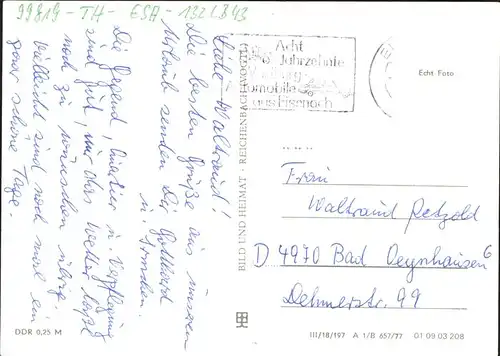 99819-TH-ESA-132LB43
Liebe Waltraud!
Die besten Grüße aus unserem
Urlaub senden Dir Gotthard
u.
Die Gegend, Quartier u. Verpflegung
sind gut, nur das Wetter läßt
noch zu wünschen übrig.
Vielleicht sind noch mal ein
paar schöne Tage.
DDR 0,25 M
BILD UND HEIMAT · REICHENBACH (VOGTL)
Acht
Jahrzehnte
omobile
aus Eisenach
Echt Foto
Frau
Waltraud Petzold
D 4970 Bad Oeynhausen 6
Dehmerstr. 99
III/18/197 A 1/B 657/77 01 09 03 208